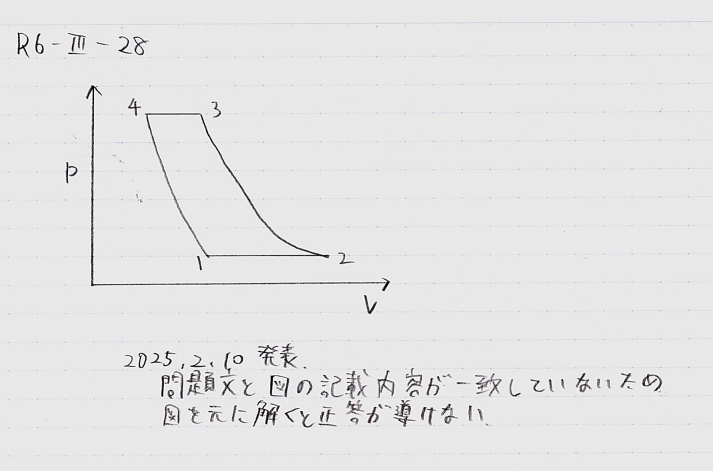 R6-Ⅲ-28
4
3
P
1
2
V
2025.2.10 発表.
問題文と図の記載内容が一致していないため
図を元に解くと正答が導けない.